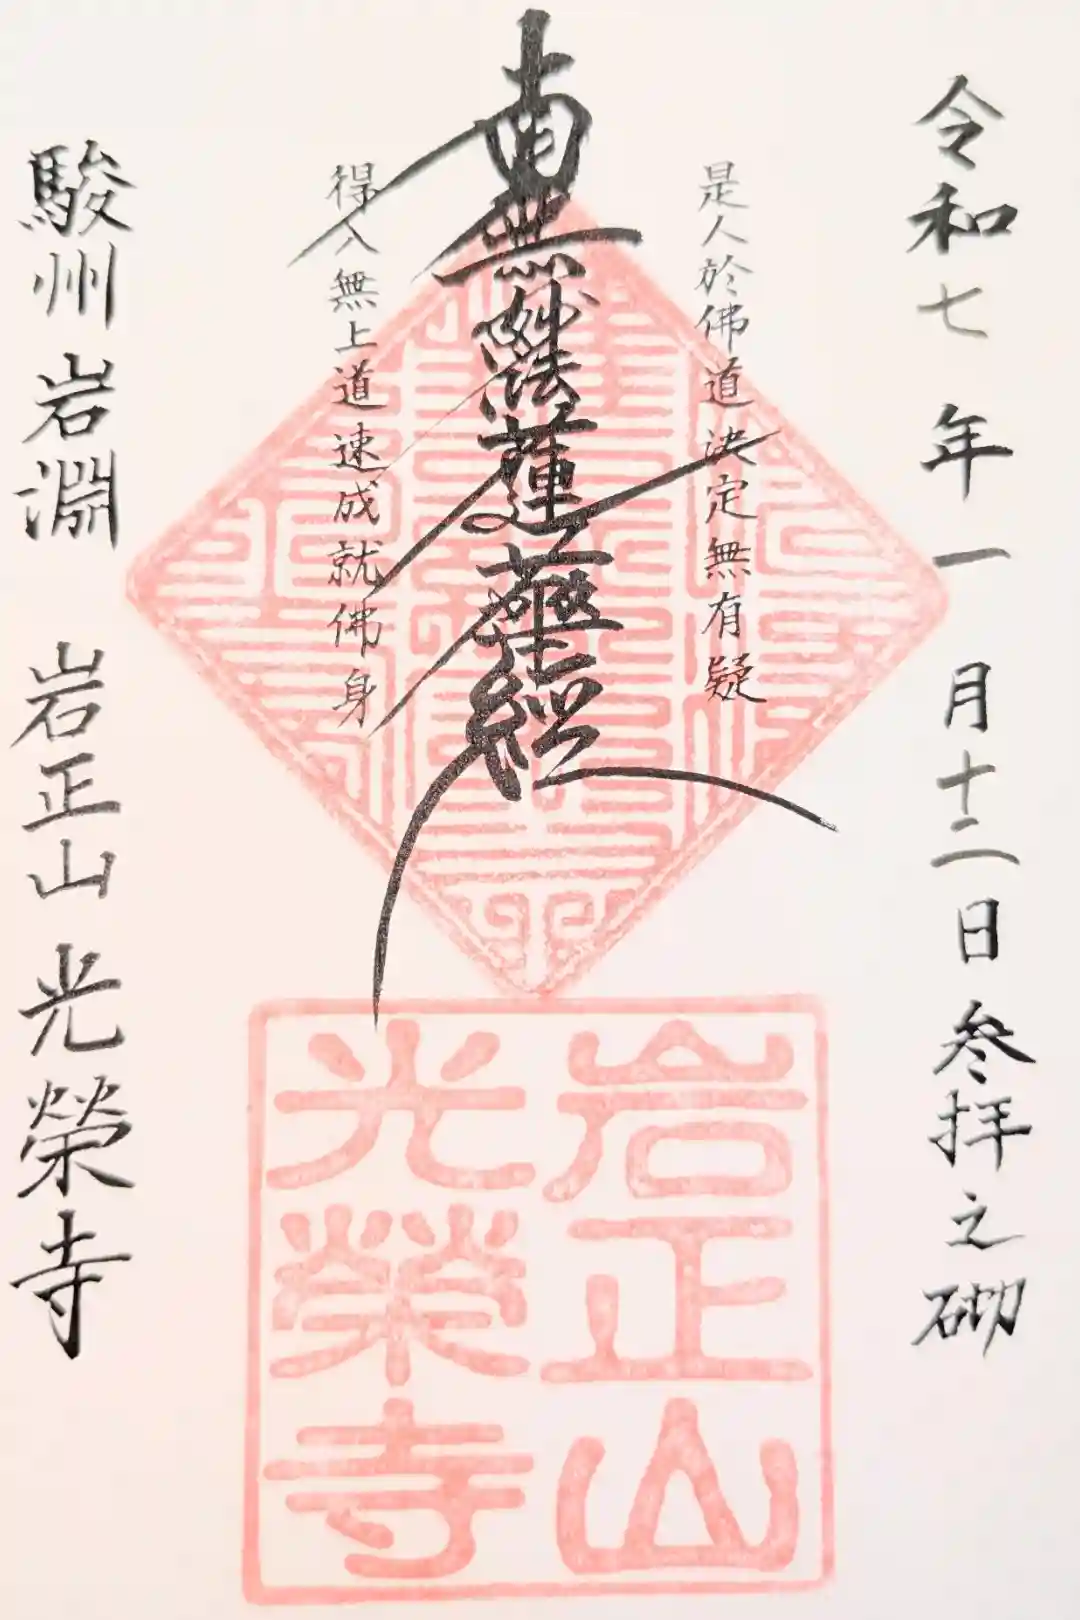 令和七年一月十二日 参拝之砌
是人於佛道決定無有疑
南無妙法蓮華経
得入無上道速成就佛身
駿州岩淵 岩正山光榮寺
岩正山
光榮寺